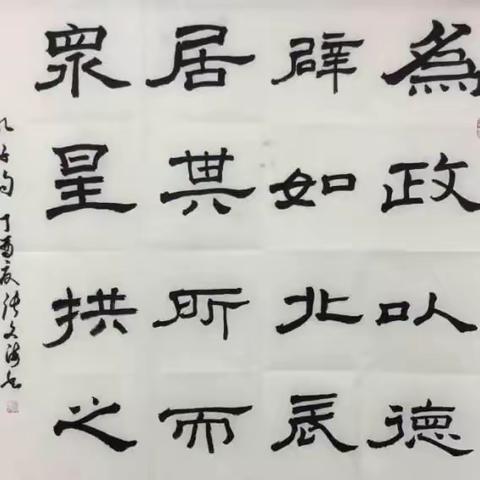 為政以德
辟如北辰
居其所而
眾星拱之
孔子句 丁酉夏张文海书